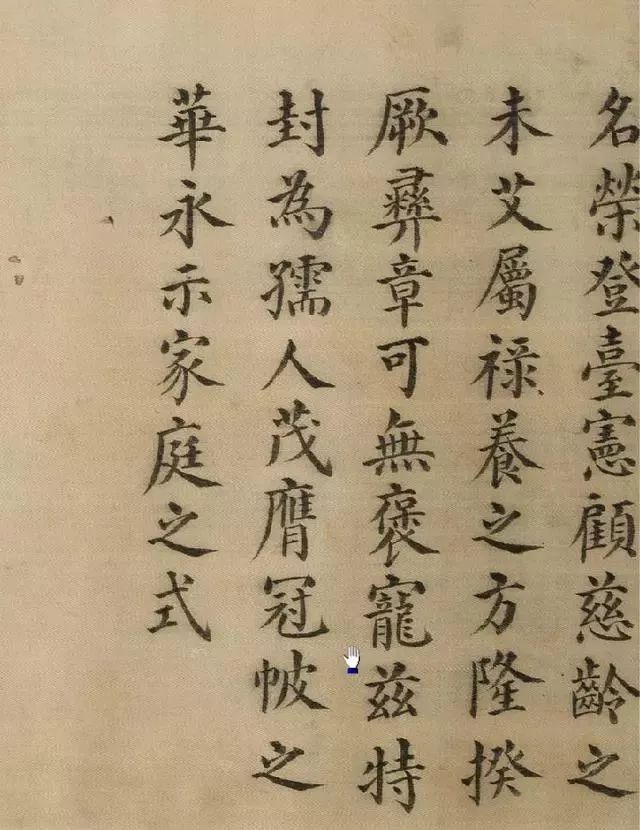 名榮登臺憲顧慈齡之
未艾屬祿養之方隆揆
厥彞章可無褒寵兹特
封為孺人茂膺冠帔之
華永示家庭之式